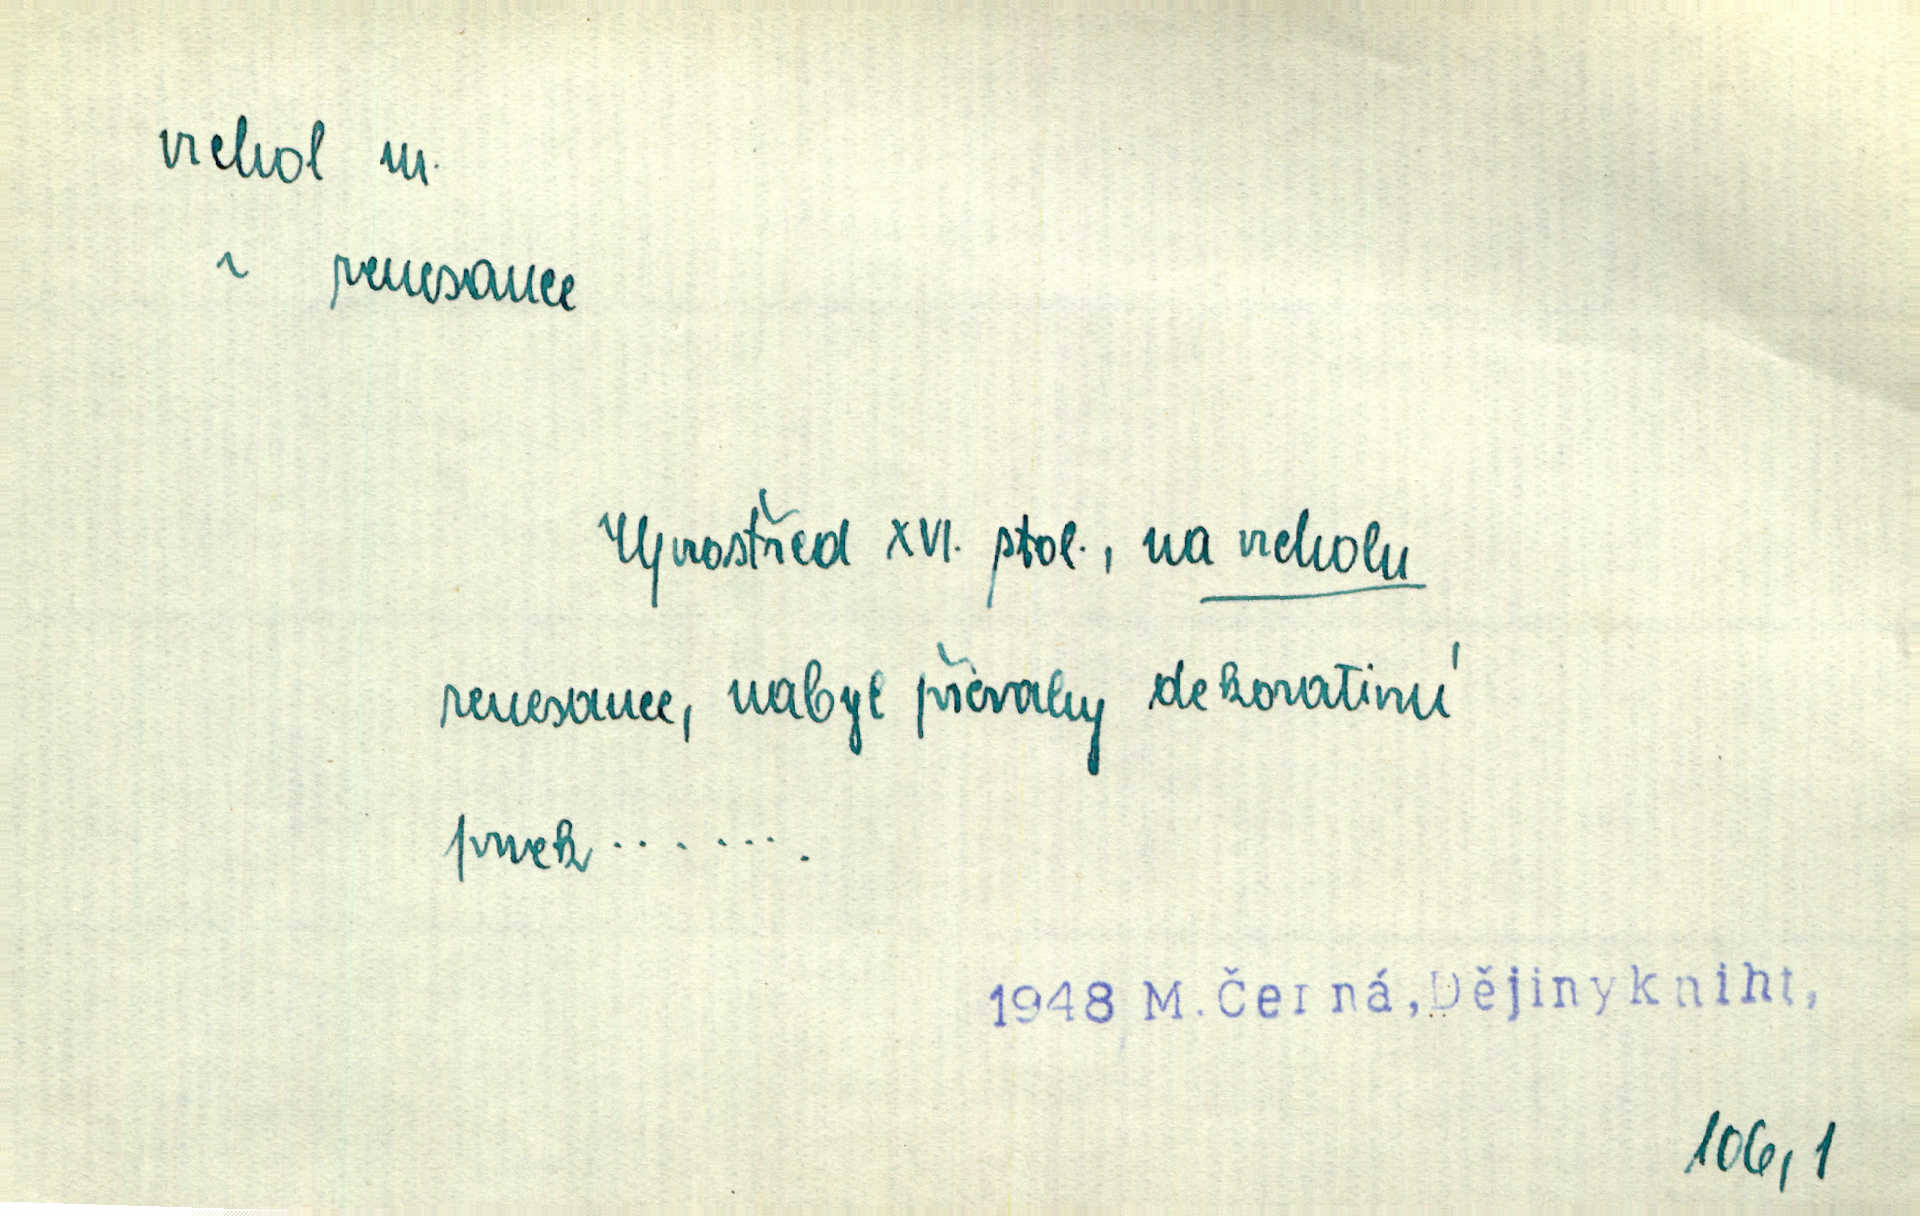 vrchol m.
~ renesance
Uprostřed XVI. stol., na vrcholu
renesance, nabyl převahy dekorativní
prvek .......
1948 M. Černá, Dějiny kniht,
106,1